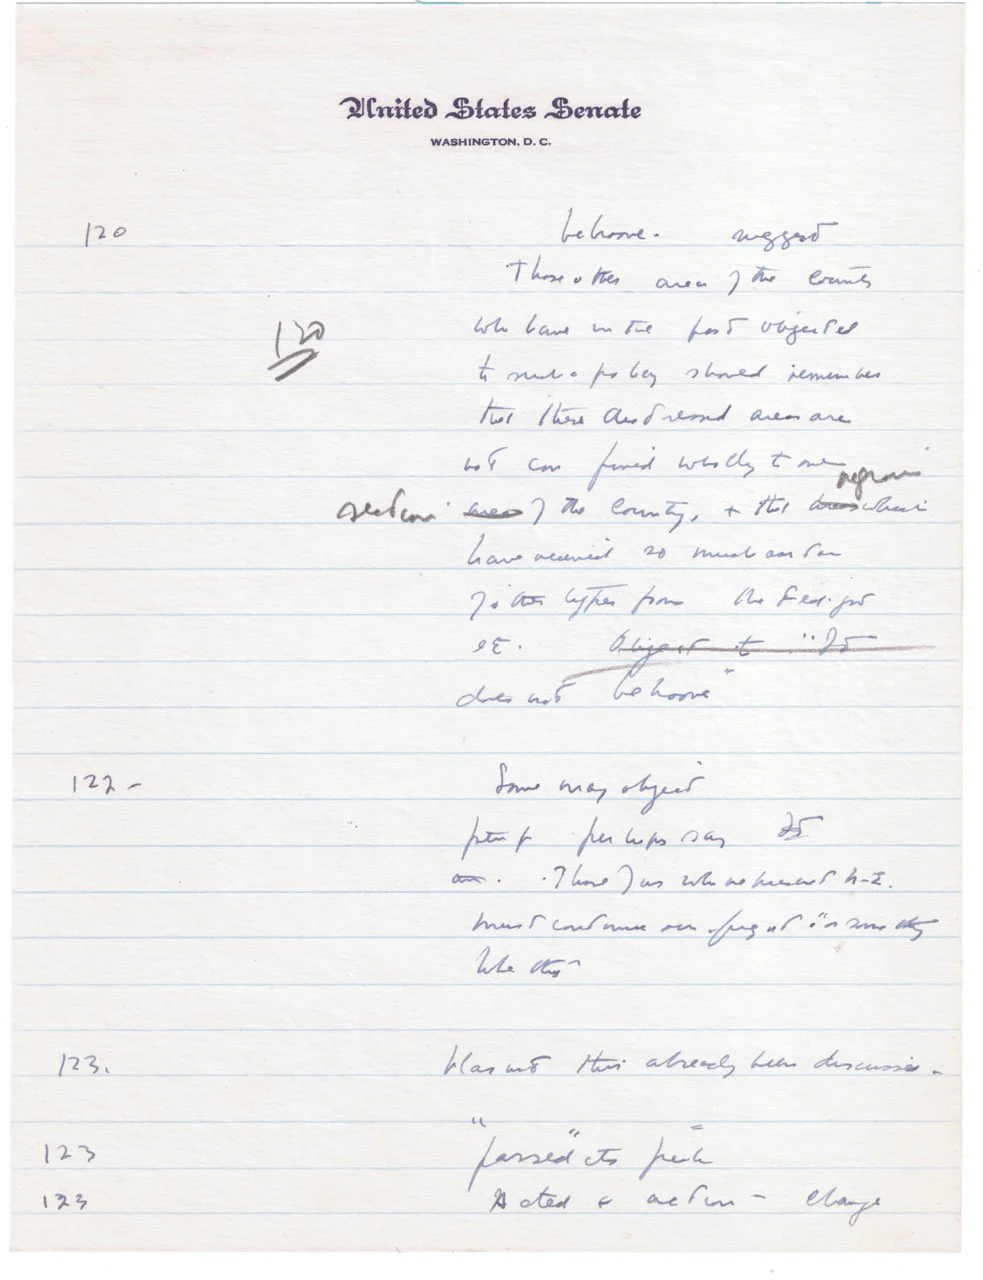 United States Senate
WASHINGTON, D. C.
120 behoove - suggest
Those other areas of the country
120
who have in the past objected
to such a policy should remember
that these distressed areas are
not confined wholly to one
regions
section area of the country, + that areas which
have received so much
of other types from the Fed. gov
etc. Object to "It
does not behoove"
122 - Some may object
perhaps say It
. Those of us who represent N-E.
must continue our fight "or something
like this"
123. Has not this already been discussed -
123 "passed" its peak
123 acted & action - change